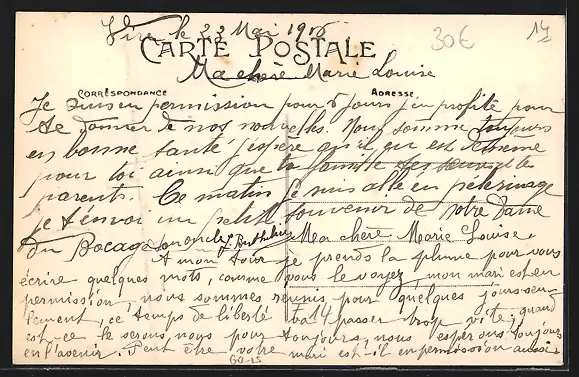 Vire le 23 Mai 1916
30€
CARTE POSTALE
Ma chère Marie Louise
CORRESPONDANCE
ADRESSE
Je suis en permission pour 6 jours j'en profite pour
te donner de nos nouvelles. Nous somme toujours
en bonne santé j'espere qu'il en est de meme
pour toi ainsi que ta famille et les
parents. Ce matin je suis allé en pélerinage
je t'envoi un petit souvenir de Notre Dame
du Bocage ton oncle
A mon tour
Ma chère Marie Louise,
je prends la plume pour vous
écrire quelques mots, comme vous le voyez, mon mari est en
permission, nous sommes réunis pour quelques jours seu-
lement, ce temps de liberté va passer trop vite; quand
est-ce le serons nous pour toujours, nous espérons toujours
en l'avenir. Peut être votre mari est-il en permission aussi.